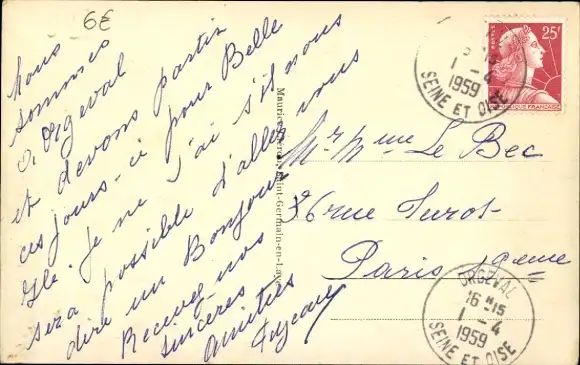 6€
Nous
sommes
à Orgeval
et devons partir
ces jours-ci pour Belle
Ile. Je ne sais s'il nous
sera possible d'aller vous
dire un Bonjour
Recevez nos
sincères
Amitiés
Mr Mme Le Bec
26 rue
Paris
Saint-Germain-en-Laye
POSTES
25F
RÉPUBLIQUE FRANÇAISE
1 - 4
1959
SEINE ET OISE
ORGEVAL
16 H 15
1 - 4
1959
SEINE ET OISE